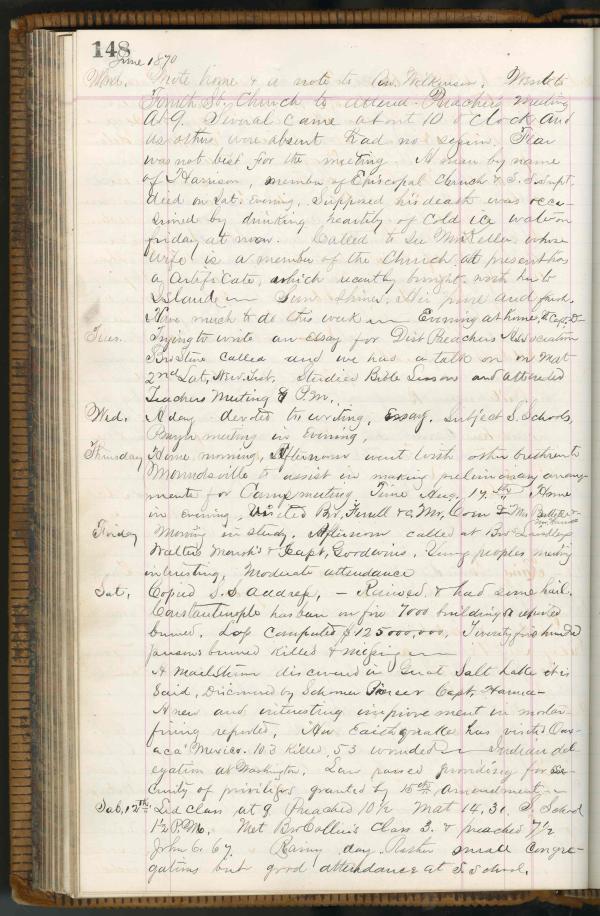 148
June 1870
Wrote home & a note to Bro. Wilkinson. Went to
Fourth St. Church to attend Preachers meeting
at 9. Several came about 10 o clock and
as others were absent had no session. Fear
was not best for the meeting. A man by name
of Harrison, member of Episcopal Church & S. S. Supt.
died on Sat. evening, Supposed his death was occa-
sioned by drinking heartily of cold ice water on
friday at noon. Called to see whose
wife is a member of the Church at present has
a Certificate, which recently brought with her to
Island — Sun shines. Air pure and fresh.
Have much to do this week — Evening at home,
Tues. Trying to write an essay for Dist Preachers Association
Bro Stine called and we has a talk on on Mat
2nd Lat, New Test. Studied Bible Lesson and attended
Teachers Meeting 8 P.M.
Wed. A day devoted to writing, Essay. Subject S. Schools,
Prayer meeting in Evening,
Thursday Home morning, Afternoon went with other brethren to
Moundsville to assist in making preliminary arrange-
ments for Camp meeting, Time Aug. 17th Home
in evening, Visited Br. Ferrell & c. Mr. Corn & Mrs
Friday Morning in study. Afternoon called at Bro
Walter & Capt, Goodwins. Young peoples meeting
interesting, Moderate attendance
Sat, Copied S. S. Address, — Rained & had some hail.
Constantinople has been on fire 7000 buildings reported
burned. Loss computed $125000,000, Twenty five hundred
persons burned killed & missing —
A Mailstrom discovered in Great Salt Lake it is
said, Discovered by Schoner Pioneer Capt,
A new and interesting improvement in mortar
firing reported, An Earthquake has visited Oax-
aca Mexico. 103 killed, 53 wounded — Indian del-
egation at Washington. Law passed providing for se-
curity of privileges granted by 15th amendment —
Sab, 12th Led class at 9 Preached 10½ Mat 14.31. S. School
1½ P.M. Met Bro Collins Class 3. & preached 7½
John 6. 67. Rainy day Rather small Congre-
gations but good attendance at S. School.